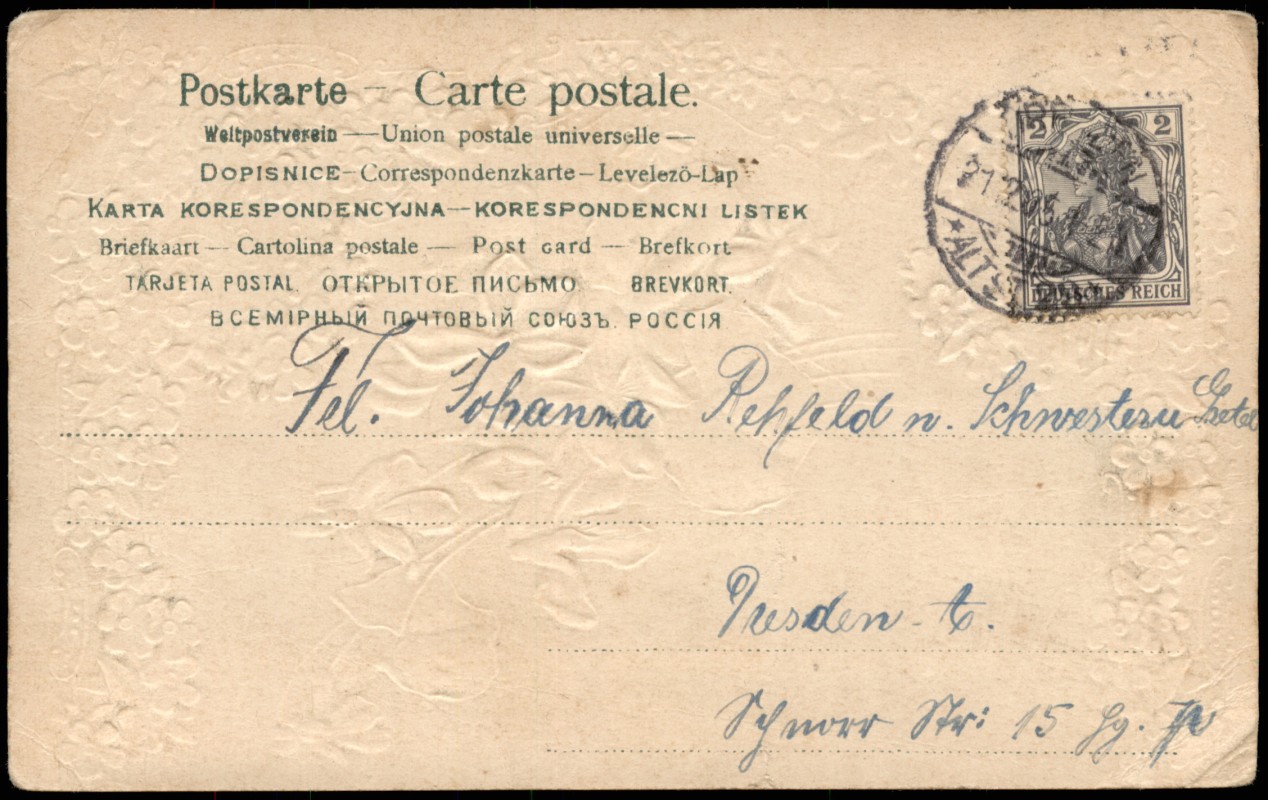 Postkarte – Carte postale.
Weltpostverein — Union postale universelle —
DOPISNICE – Correspondenzkarte – Levelezö-Lap
KARTA KORESPONDENCYJNA — KORESPONDENCNI LISTEK
Briefkaart — Cartolina postale — Post card — Brefkort
TARJETA POSTAL. ОТКРЫТОЕ ПИСЬМО BREVKORT.
ВСЕМIРНЫЙ ПОЧТОВЫЙ СОЮЗЪ. РОССIЯ
2 2
DEUTSCHES REICH
Frl. Johanna Rehfeld n. Schwestern
Dresden - A.
Schnorr Str: 15 Hg.